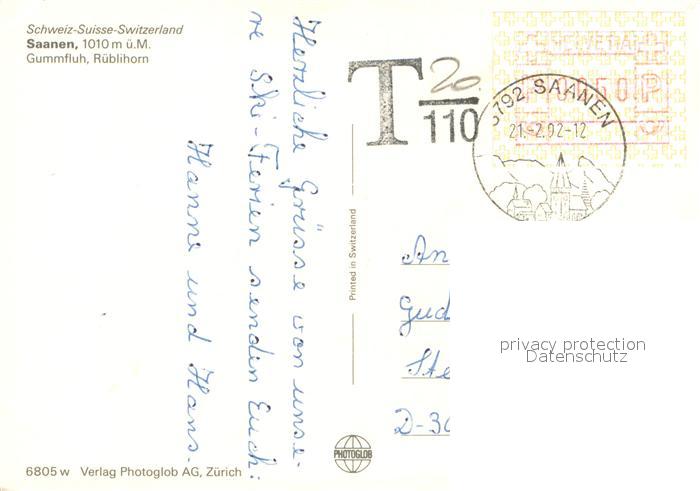 Schweiz-Suisse-Switzerland
Saanen, 1010 m ü.M.
Gummfluh, Rüblihorn
Herzliche Grüsse von unse-
re Ski-Ferien senden Euch:
Hanne und Hans.
Printed in Switzerland
T 20
110
HELVETIA
0060 P
3792 SAANEN
21.-2.92-12
An
Gud
Ste
D-30
privacy protection
Datenschutz
PHOTOGLOB
6805 w Verlag Photoglob AG, Zürich